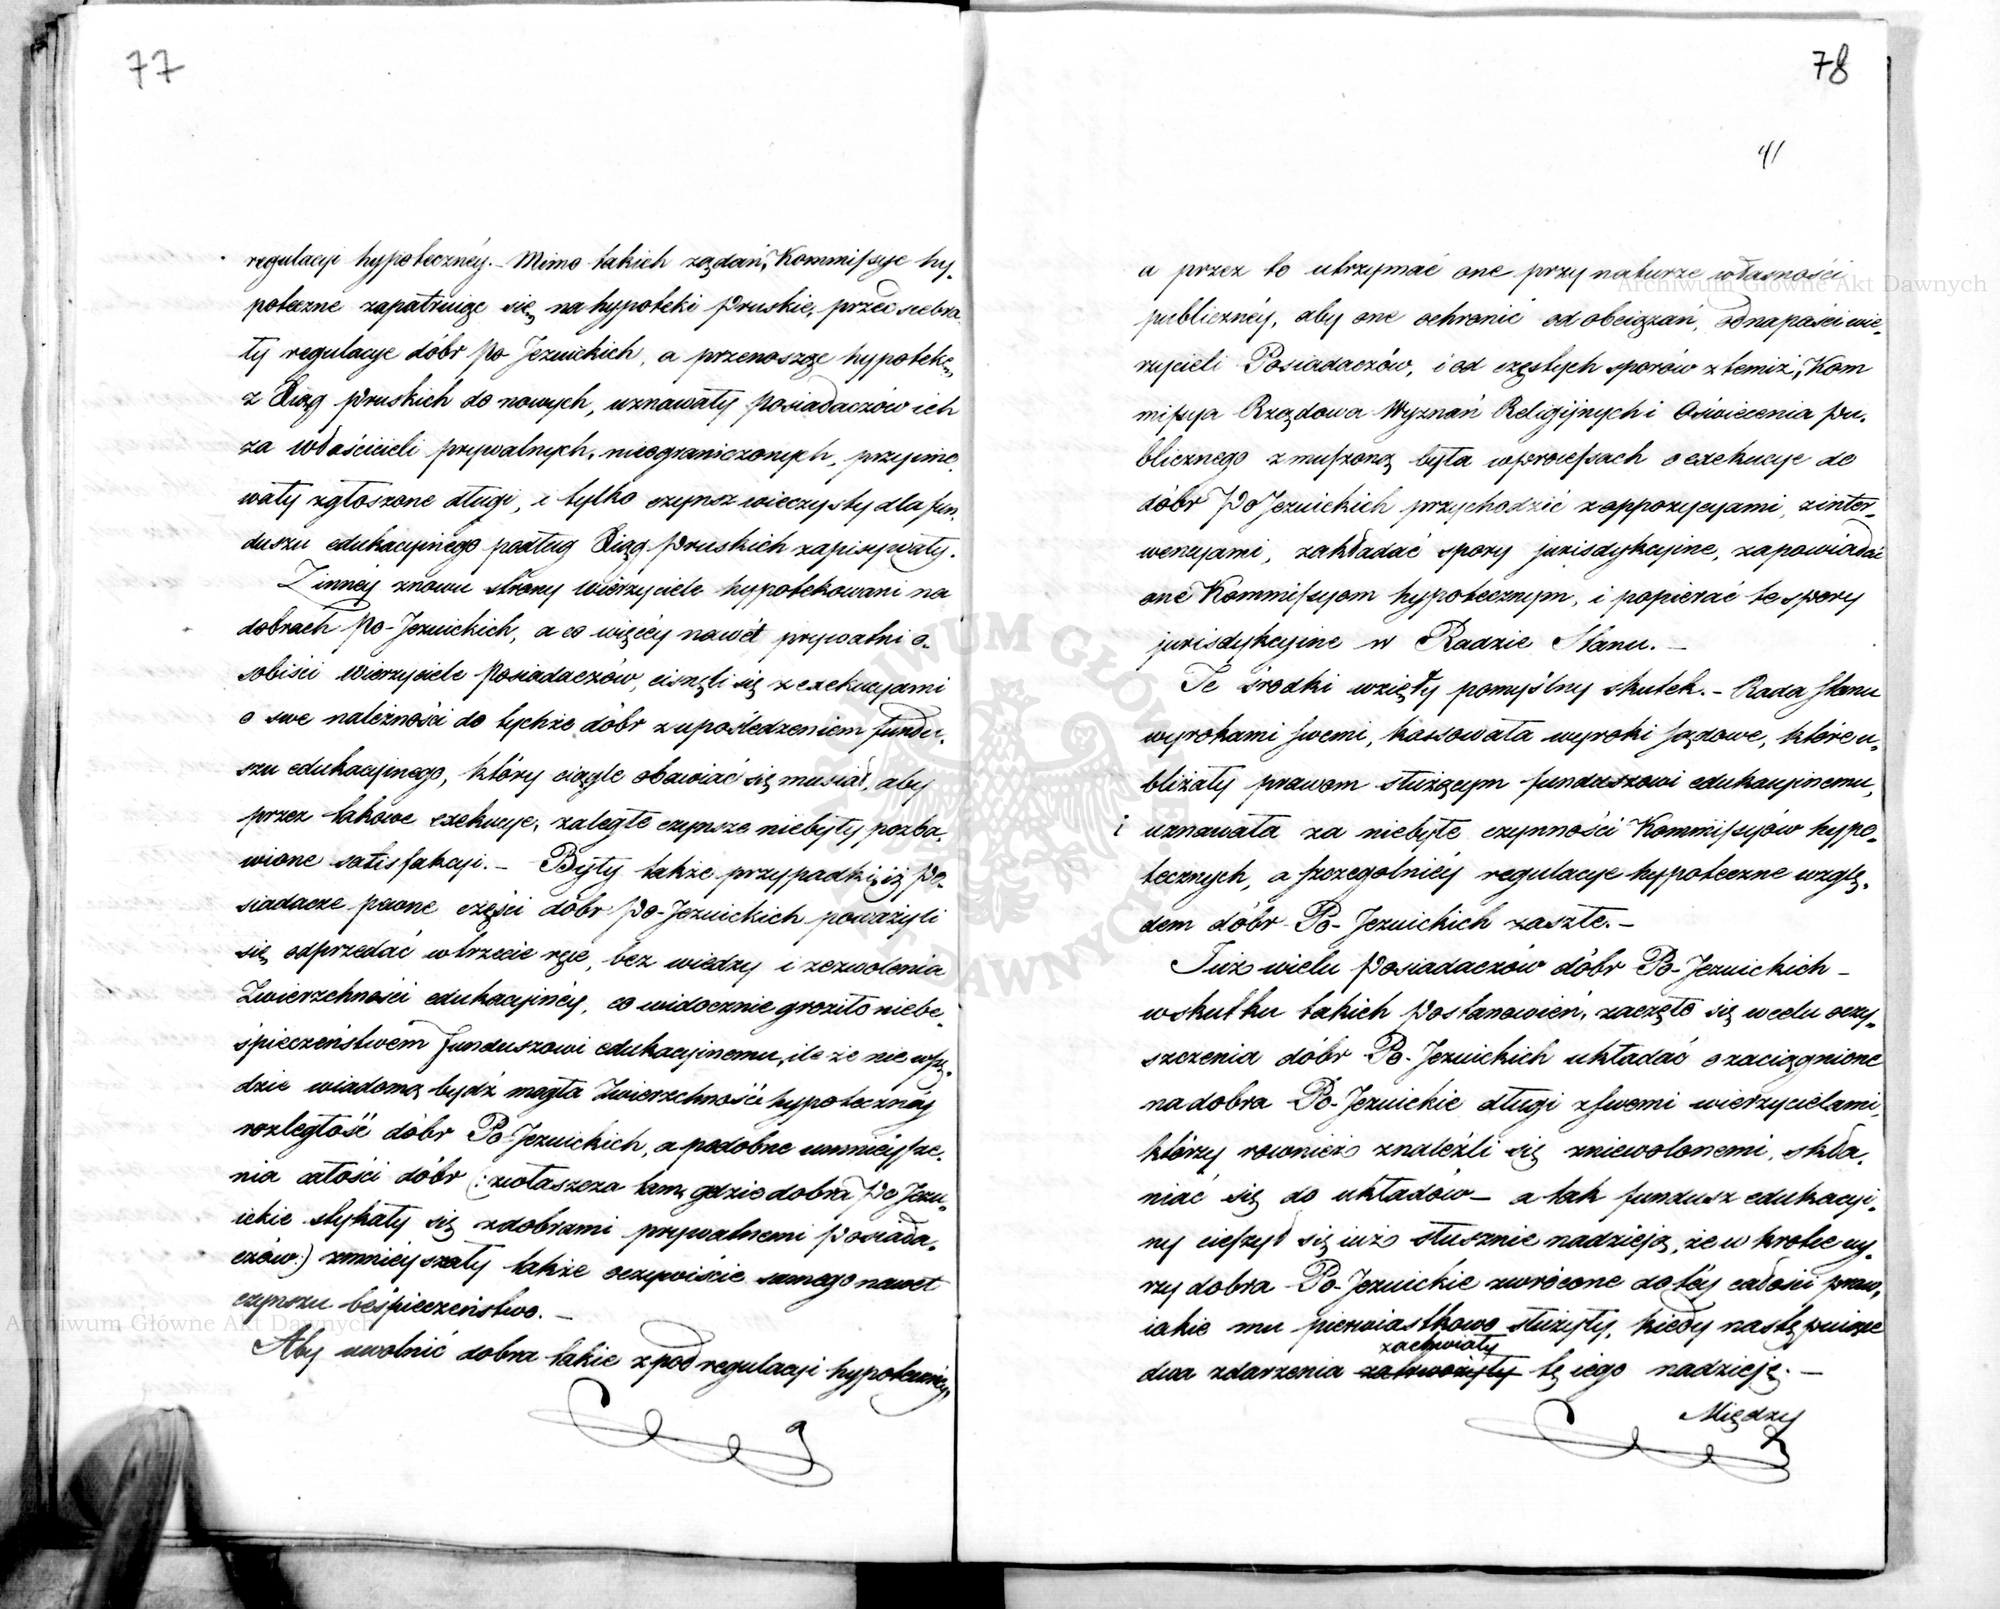 77
regulacyi hypoteczney. – Mimo takich żądań, Kommissye hy-
poteczne zapatruiąc się na hypoteki Pruskie, przedsiebra-
ły regulacye dóbr Po Jezuickich, a przenosząc hypotekę
z Xiąg Pruskich do nowych, uznawały Posiadaczów ich
za właścicieli prywatnych, nieograniczonych, przyimo-
wały zgłoszone długi, i tylko czynsz wieczysty dla fun-
duszu edukacyinego podług Xiąg Pruskich zapisywały.
Z inney znowu strony wierzyciele hypotekowani na
dobrach Po-Jezuickich, a co więcey nawet prywatni o-
sobiści Wierzyciele Posiadaczów, cisnęli się z exekucyami
o swe należności do tychże dóbr z upośledzeniem fundu-
szu edukacyinego, który ciągle obawiać się musiał, aby
przez takowe exekucye, zaległe czynsze niebyły pozba-
wione satisfakcyi. – Były także przypadki, iż Po-
siadacze pewne części dóbr Po-Jezuickich poważyli
się odprzedać w trzecie ręce, bez wiedzy i zezwolenia
Zwierzchności edukacyiney, co widocznie groziło niebe-
śpieczeństwem funduszowi edukacyinemu, ile że nie wszę-
dzie wiadomą bydź mogła Zwierzchności hypoteczney
rozległość dóbr Po-Jezuickich, a podobne umnieysze-
nia całości dóbr (: zwłaszcza tam, gdzie dobra Po Jezu-
ickie stykały się z dobrami prywatnemi Posiada-
czów:) zmnieyszały także oczywiście samego nawet
czynszu beśpieczeństwo. –
Aby uwolnić dobra takie z pod regulacyi hypoteczney,
78
41
a przez to utrzymać one przy naturze własności
publiczney, aby one ochronić od obciążań, od napaści wie-
rzycieli Posiadaczów, i od częstych sporów z temiż, Kom
missya Rządowa Wyznań Religiynych i Oświecenia Pu-
blicznego zmuszoną była w processach o exekucye do
dóbr Po Jezuickich przychodzić z oppozycyami, z inter-
wencyami, zakładać spory jurisdykcyine, zapowiadać
one Kommissyom hypotecznym, i popierać te spory
jurisdykcyine w Radzie Stanu. –
Te środki wzięły pomyślny skutek. – Rada Stanu
wyrokami swemi, kassowała wyroki sądowe, które u-
bliżały prawom służącym funduszowi edukacyinemu,
i uznawała za niebyłe czynności Kommissyów hypo-
tecznych, a szczegolniey regulacye hypoteczne wzglę-
dem dóbr Po-Jezuickich zaszłe. –
Już wielu Posiadaczów dóbr Po-Jezuickich –
w skutku takich Postanowień, zaczęło się w celu oczy-
szczenia dóbr Po-Jezuickich układać o zaciągnione
na dobra Po-Jezuickie długi z swemi wierzycielami,
którzy rownież znaleźli się zniewolonemi, skła-
niać się do układów – a tak fundusz edukacyi-
ny cieszył się iuż słusznie nadzieją, że w krotce uy-
rzy dobra Po-Jezuickie zwrócone do tey całości praw,
iakie mu pierwiastkowo służyły, kiedy następuiące
zachwiały
dwa zdarzenia zatrwożyły tę iego nadzieję. –
Między